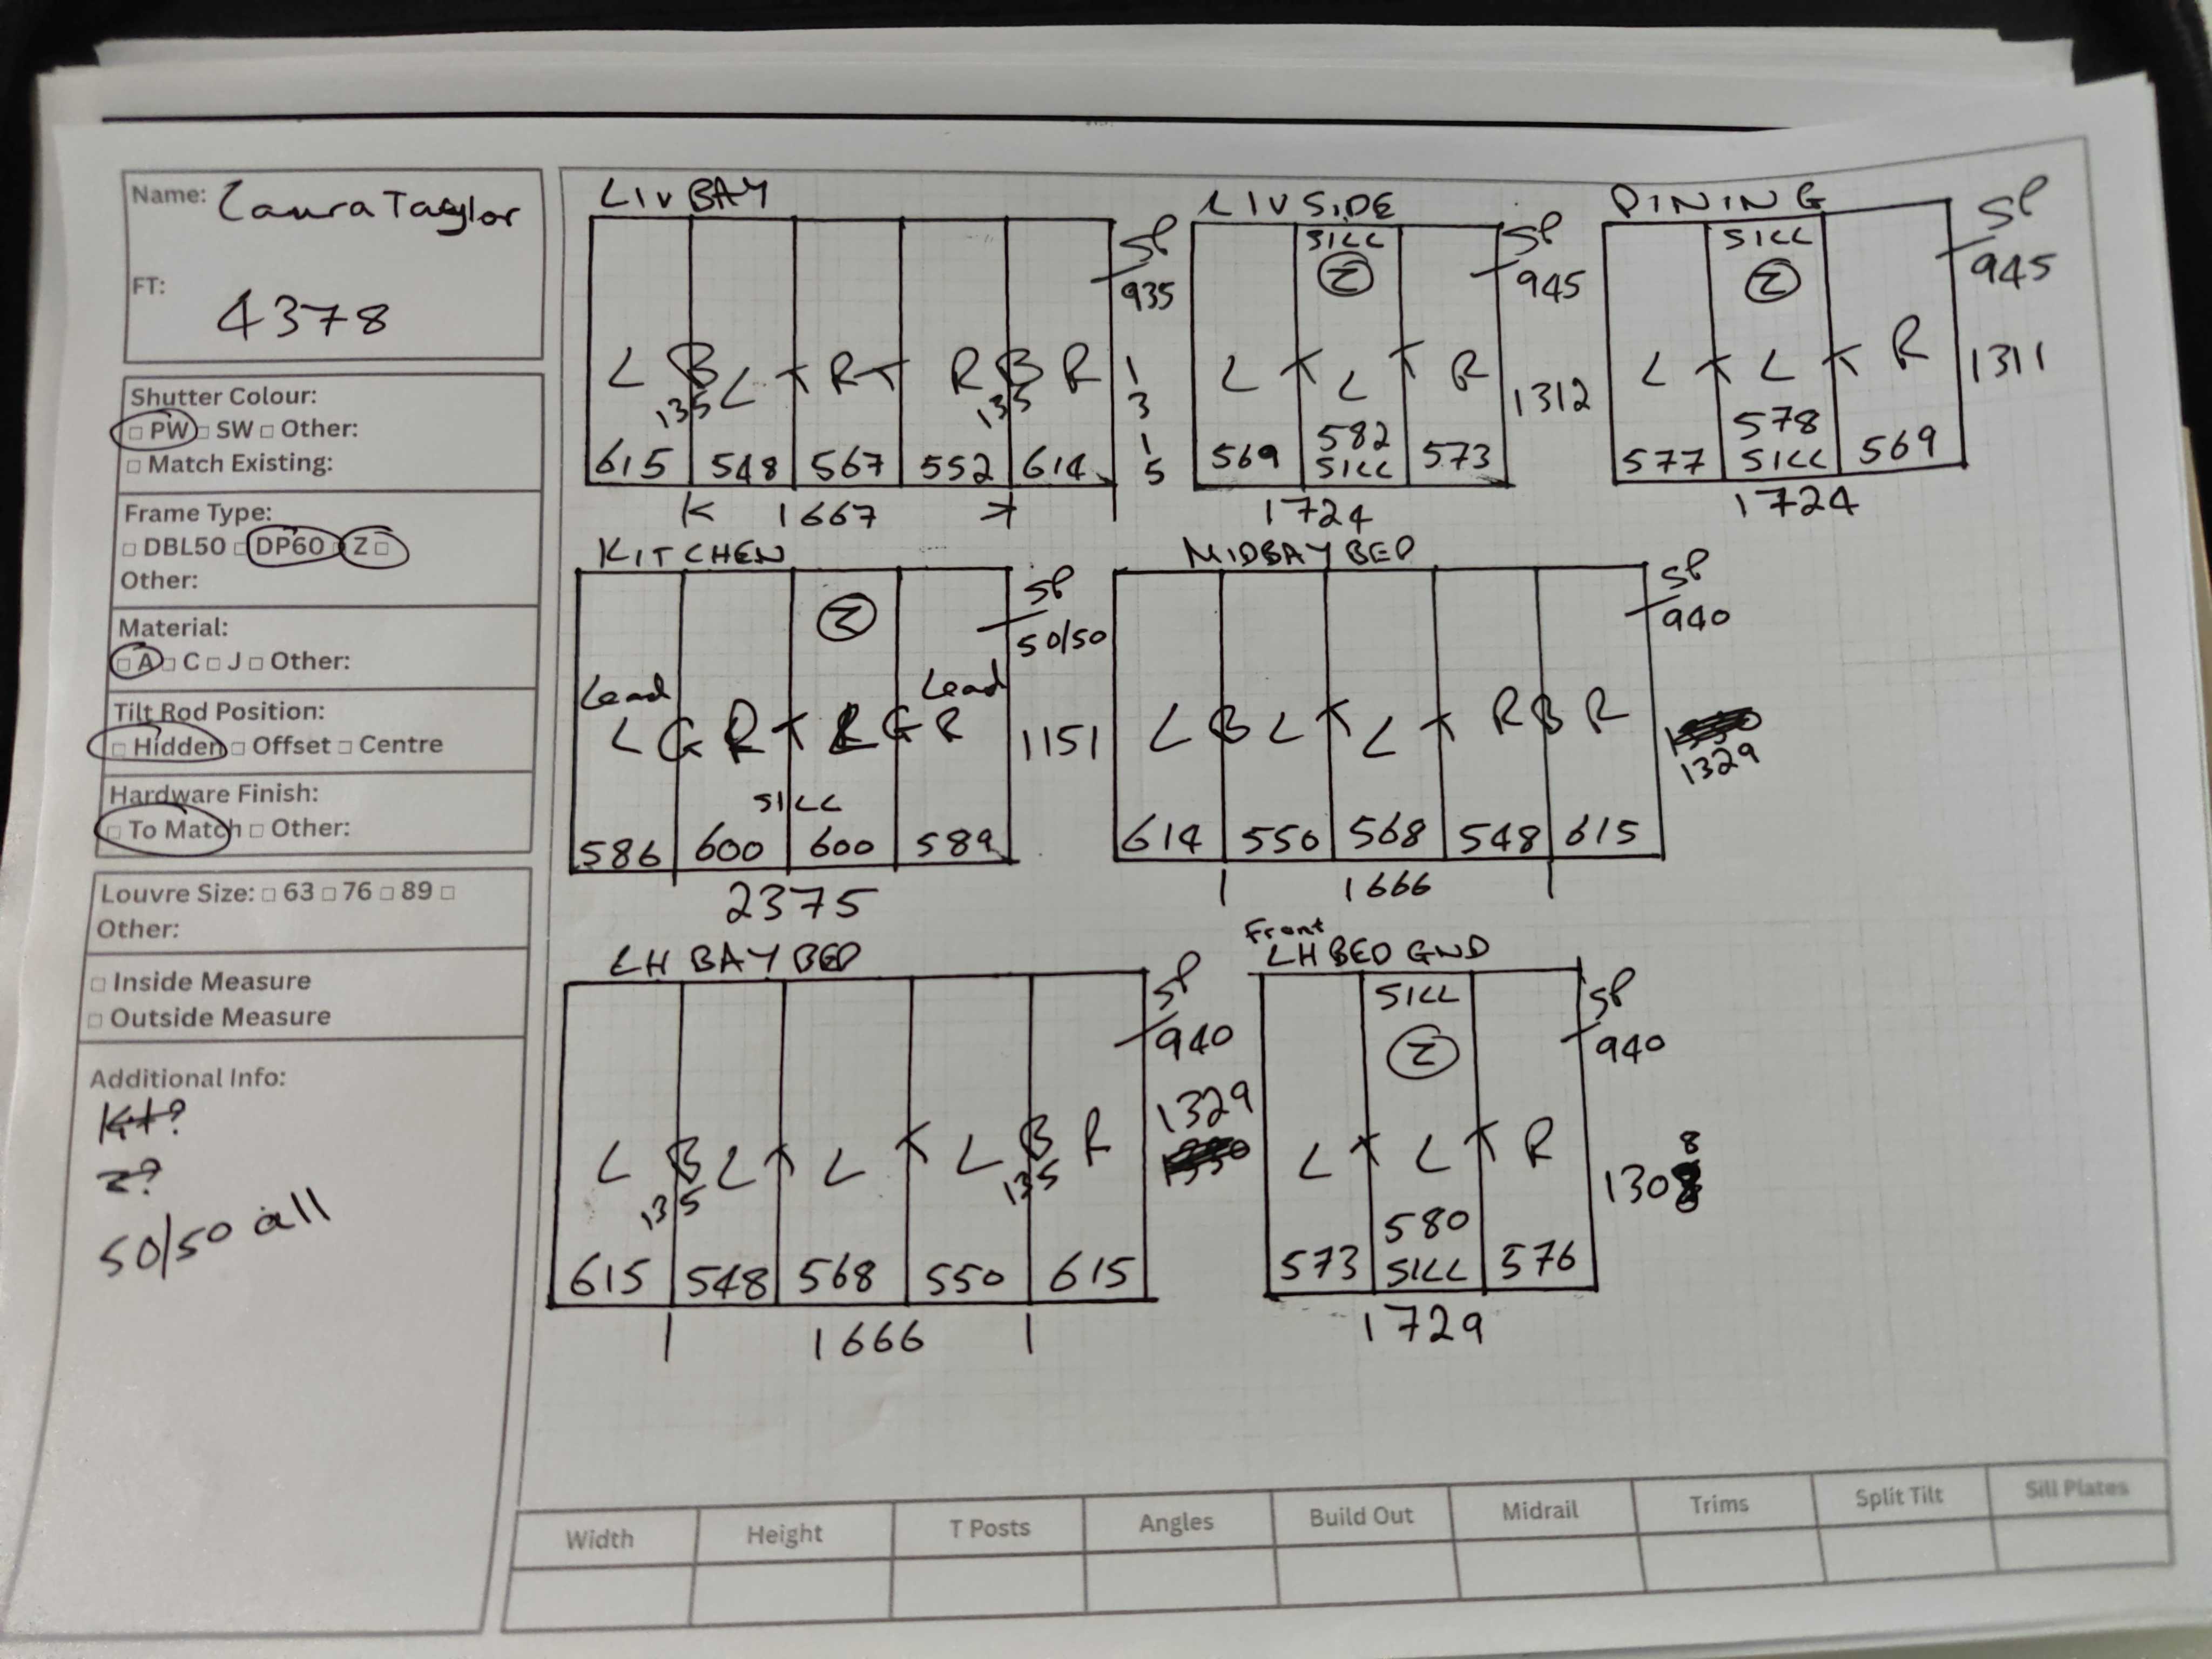 Name: Laura Taylor
FT: 4378
Shutter Colour:
□ PW □ SW □ Other:
□ Match Existing:
Frame Type:
□ DBL50 □ DP60 □ Z □
Other:
Material:
□ A □ C □ J □ Other:
Tilt Rod Position:
□ Hidden □ Offset □ Centre
Hardware Finish:
□ To Match □ Other:
Louvre Size: □ 63 □ 76 □ 89 □
Other:
□ Inside Measure
□ Outside Measure
Additional Info:
Kit?
Z?
50/50 all
LIV BAY
SP
935
L B L T R T R B R
135 135
1315
615 548 567 552 614
1667
LIV SIDE
SILL
Z
SP
945
L T L T R
1312
582
569 SILL 573
1724
DINING
SILL
Z
SP
945
L T L T R
1311
578
577 SILL 569
1724
KITCHEN
Z
SP
50/50
Lead Lead
L G R T L G R
1151
SILL
586 600 600 589
2375
MIDBAY BED
SP
940
L B L T L T R B R
1329
614 550 568 548 615
1666
LH BAY BED
SP
940
1329
L B L T L T L B R
135 135
615 548 568 550 615
1666
Front
LH BED GND
SILL
Z
SP
940
L T L T R
1308
580
573 SILL 576
1729
Width Height T Posts Angles Build Out Midrail Trims Split Tilt Sill Plates